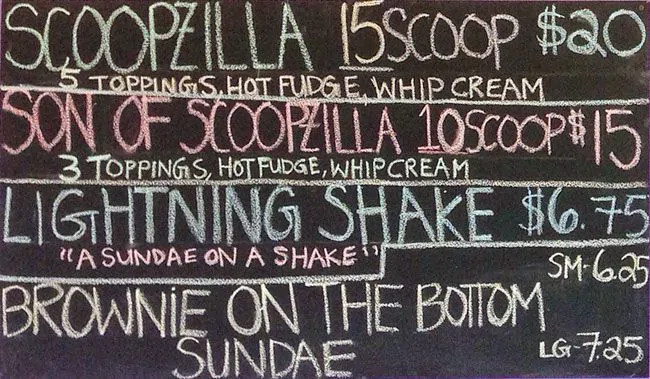 SCOOPZILLA 15 SCOOP $20
5 TOPPINGS, HOT FUDGE, WHIP CREAM
SON OF SCOOPZILLA 10 SCOOP $15
3 TOPPINGS, HOT FUDGE, WHIP CREAM
LIGHTNING SHAKE $6.75
"A SUNDAE ON A SHAKE"
SM-6.25
BROWNIE ON THE BOTTOM
SUNDAE
LG-7.25